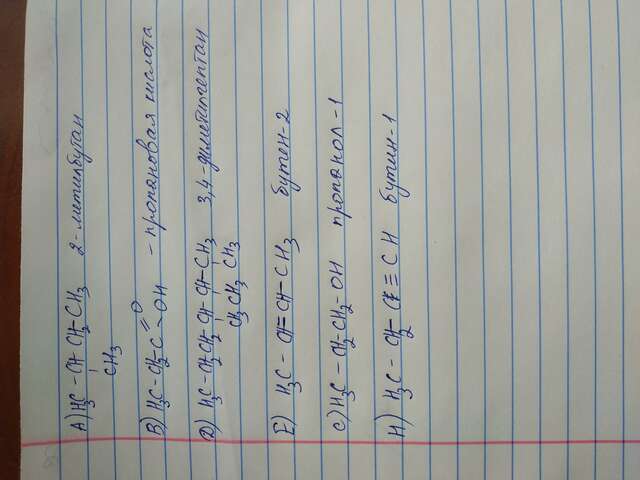 А) H3C - CH - CH2 - CH3 2-метилбутан
CH3
В) H3C - CH2 - C = O - пропановая кислота
- OH
D) H3C - CH2 - CH2 - CH - CH - CH3 3,4-диметилгептан
CH3 CH2 CH3
E) H3C - CH = CH - CH3 бутен-2
C) H3C - CH2 - CH2 - OH пропанол-1
H) H3C - CH2 - C ≡ C H бутин-1